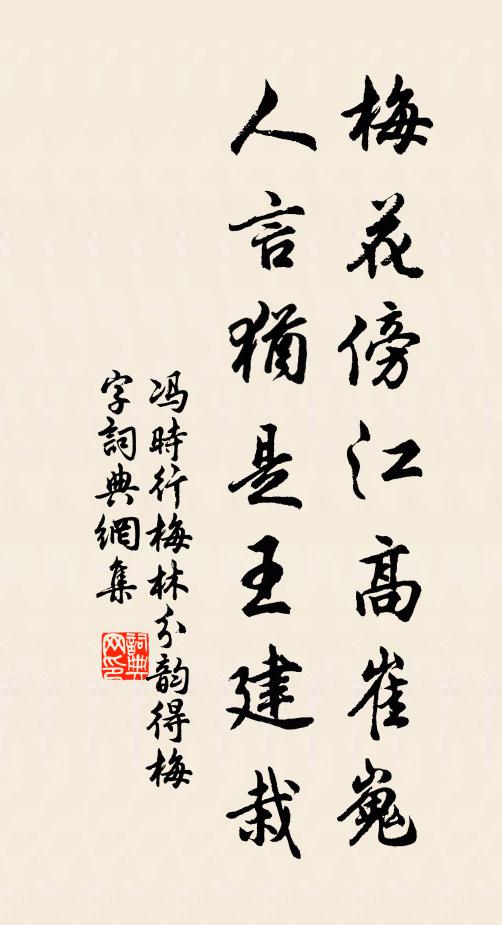 梅花傍江高崔嵬
人言猶是王建栽
冯時行梅林分韵得梅
字詞典網集
詞典網印